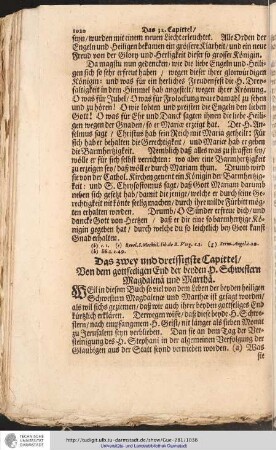 1020 Das 31. Capittel/
seyn/ wurden mit einem neuen Liecht erleuchtet. Alle Orden der
Engeln und Heiligen bekamen ein grössere Klarheit/ und ein neue
Freud von der Glory und Herrligkeit dieser so grossen Königin.
Da magstu nun gedencken/ wie die liebe Engeln und Heili-
gen sich so sehr erfreut haben / wegen dieser ihrer glorwürdigen
Königin: und was für ein herliches Freudenfest die H. Drey-
faltigkeit in dem Himmel hab angestelt/ wegen ihrer Krönung.
O was für Jubel/ O was für Frolockung ware damahl zu sehen
und zu hören! O wie lobten und preiseten die Engeln den lieben
Gott! O was für Ehr und Danck sagten ihme die liebe Heili-
gen wegen der Gnaden/ so er Maria erzeigt hat. Der H. An-
selmus sagt / Christus hab sein Reich mit Maria getheilt: Für
sich habe er behalten die Gerechtigkeit/ und Maria hab er geben
die Barmhertzigkeit. Nemblich daß alles was zu straffen sey/
wölle er für sich selbst verrichten: wo aber eine Barmhertzigkeit
zu erzeigen sey/ daß wölle er durch Mariam thun. Drumb wird
sie von der Cathol. Kirchen genent ein Königin der Barmhertzig-
keit: und S. Chrysostomus sagt/ daß Gott Mariam darumb
neben sich gesetzt hab/ damit die jenige/ welche er durch seine Ge-
rechtigkeit nit könte seelig machen/ durch ihre milde Fürbitt mög-
ten erhalten werden. Drumb/ O Sünder erfreue dich/ und
dancke Gott von Hertzen / daß er dir eine so barmhertzige Kö-
nigin gegeben hat / durch welche du so leichtlich bey Gott kanst
Gnad erhalten.
Das zwey und dreissigste Capittel/
Von dem gottseeligen End der beyden H. Schwestern
Magdalena und Martha.
WEil in diesem Buch so viel von dem Leben der beyden heiligen
Schwestern Magdalenæ und Marthæ ist gesagt worden/
als wils sichs geziemen/ daß wir auch ihrer beyden gottseliges End
kürtzlich erklären. Derwegen wisse/ daß diese beyde H. Schwe-
stern/ nach empfangenem H. Geist/ nit länger als sieben Monat
zu Jerusalem seyn verblieben. Dan sie an dem Tag der Ver-
steinigung des H. Stephani in der algemeinen Verfolgung der
Glaubigen aus der Statt seynd vertrieben worden. (a) Was
sie